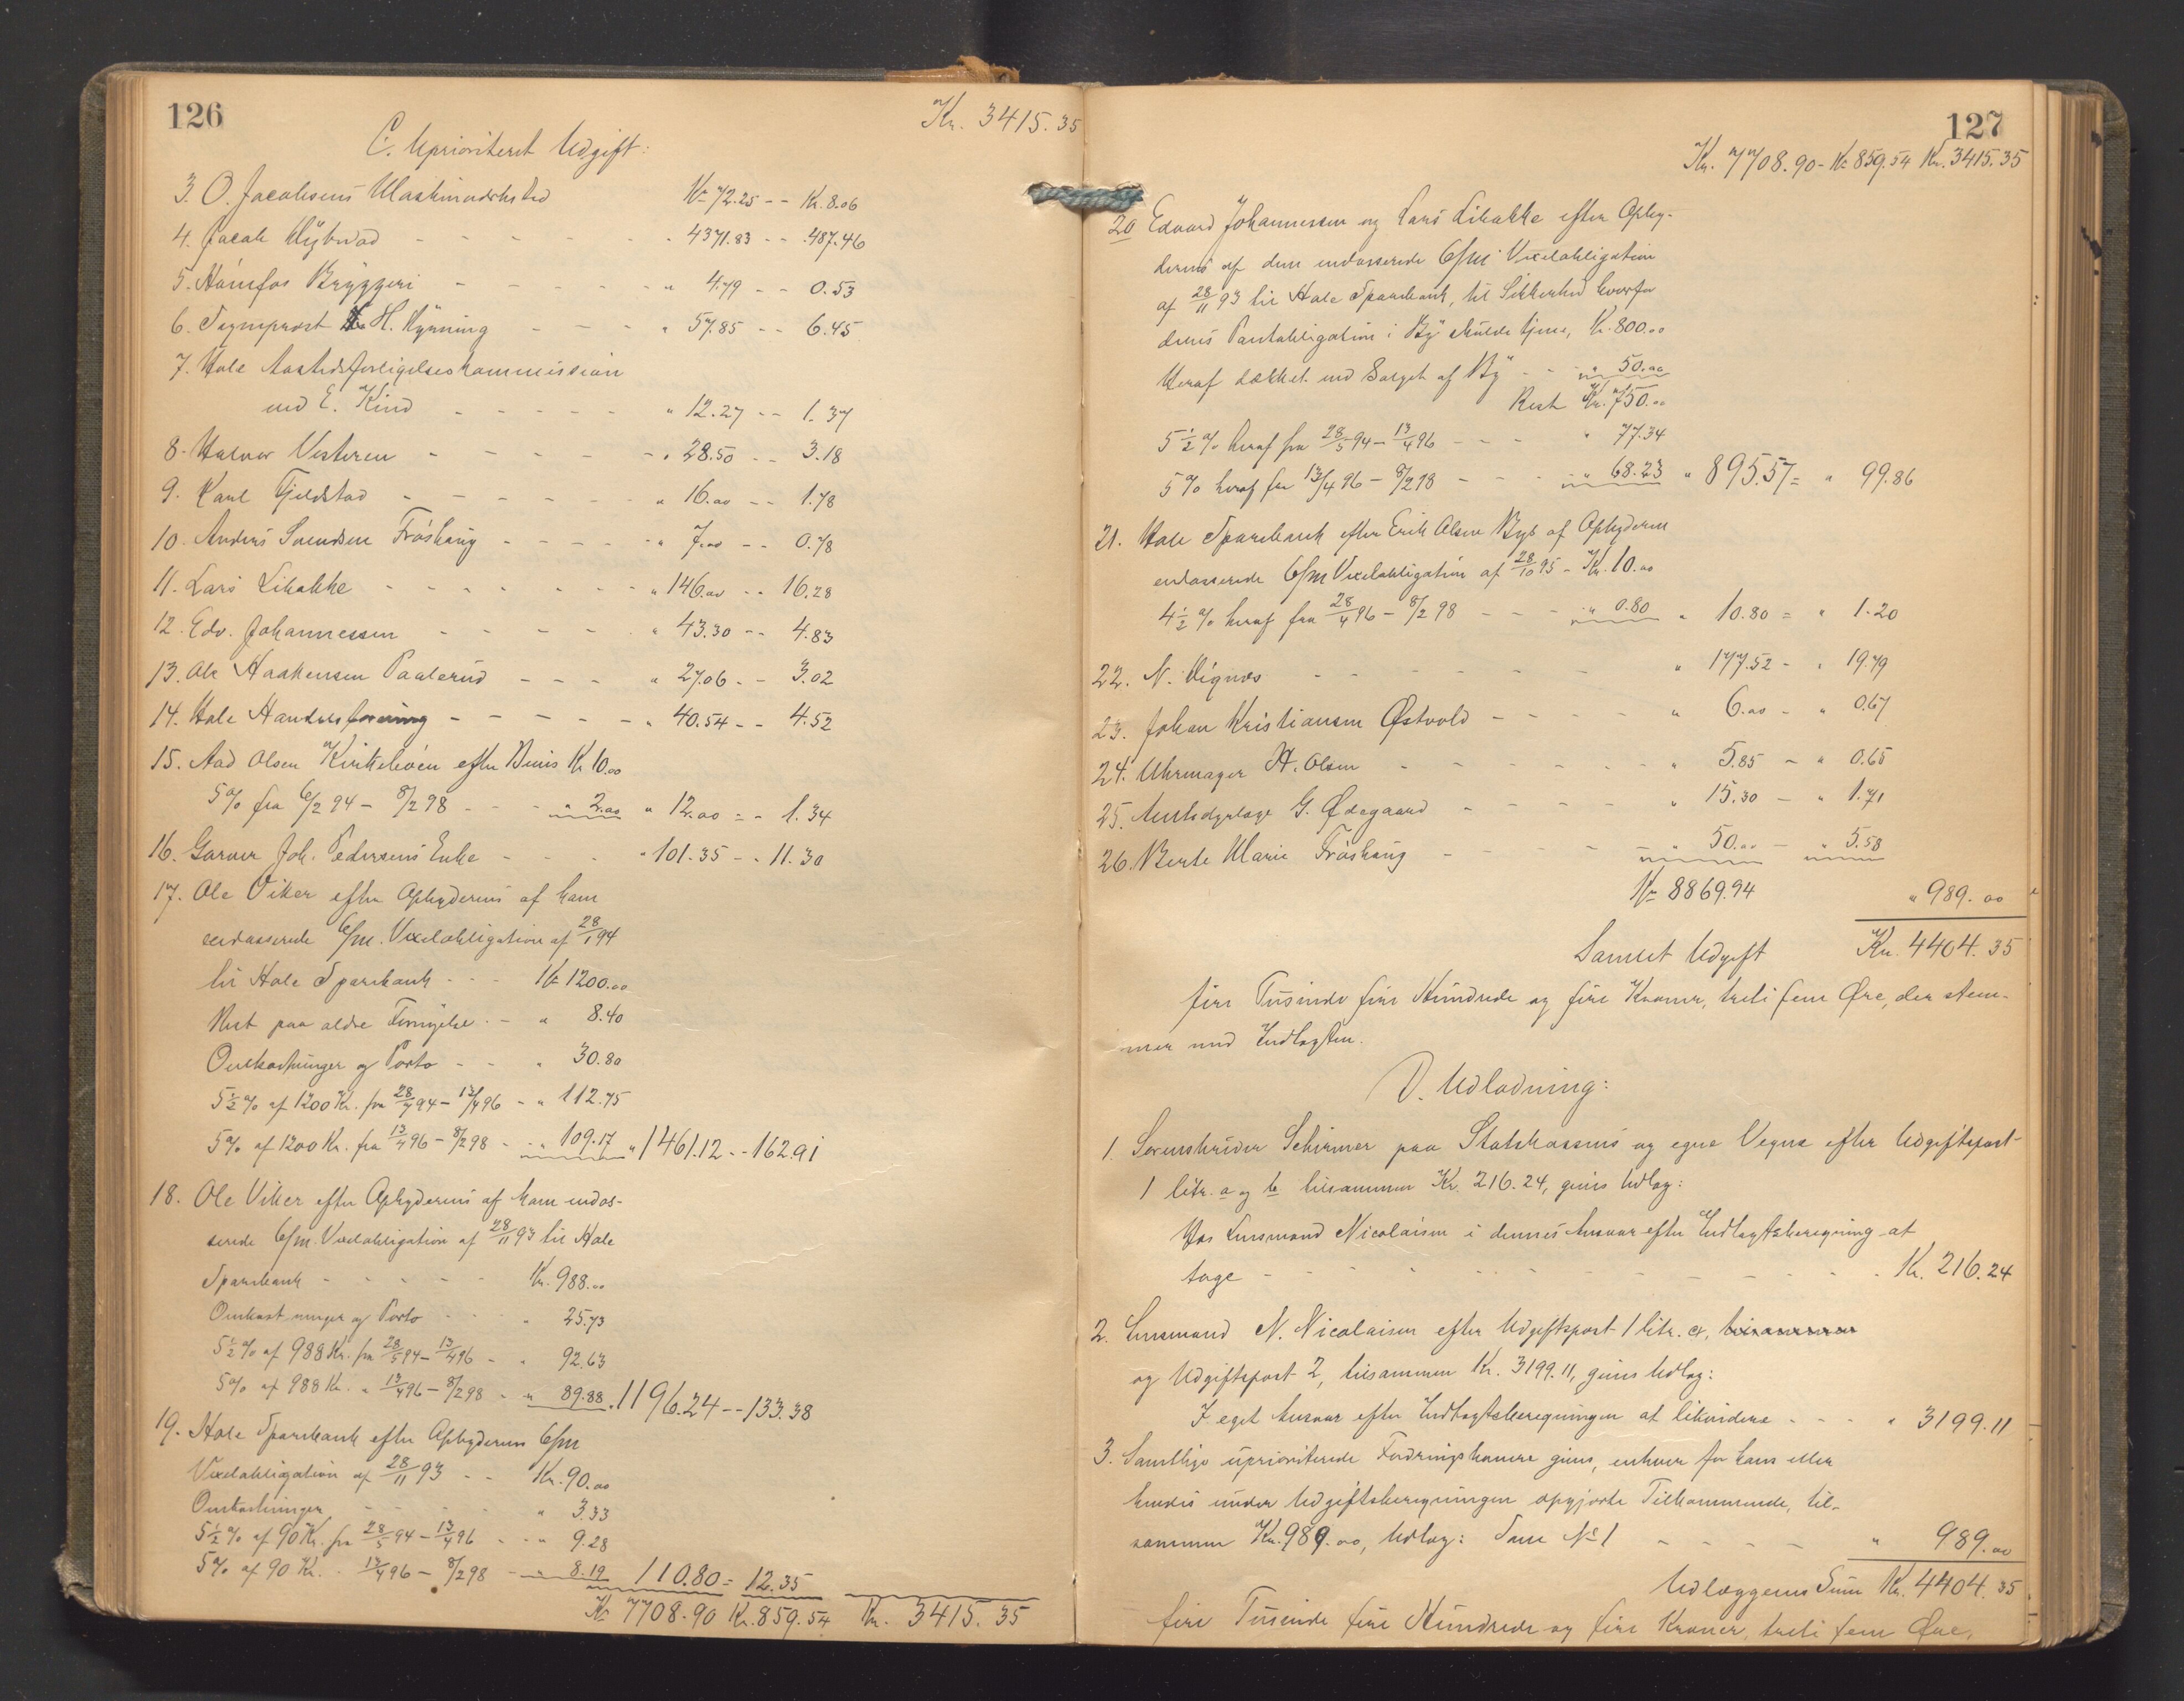 126
Kr. 3415.35
C. Uprioriteret Udgift:
3. O. Jacobsens Maskinverksted Kr 72.25 -- Kr. 8.06
4. Jacob - - - - - " 4371.83 - - " 487.46
5. Hønefos Bryggeri - - - - - " 4.79 - - 0.53
6. H. Kynning - - - " 57.85 - - 6.45
7. Hole Aastedsforligelseskommission
ved E. Kind - - - - - " 12.27 - - 1.37
8. Halvor Vesteren - - - - - " 28.50 - - 3.18
9. Karl Fjeldstad - - - - - " 16.00 - - 1.78
10. Anders Svendsen Frøshaug - - - - " 7.00 - - 0.78
11. Lars Libakke - - - - - - " 146.00 - - 16.28
12. Edv. Johannessen - - - - - " 43.30 - - 4.83
13. Ole Haakensen Paalerud - - - " 27.06 - - 3.02
14. Hole Handelsforening - - - - - " 40.54 - - 4.52
15. Aad Olsen Kirkebøen efter Bevis Kr 10.00
5 % fra 6/2 94 - 8/2 98 - - - " 2.00 " 12.00 = - 1.34
16. Garver Joh. Pedersens Enke - - - " 101.35 - - 11.30
17. Ole Viker efter Aphyderens af ham
endosserede 6/m. Vixelobligation af 28/1 94
til Hole Sparebank - - - Kr 1200.00
Rest paa ældre Fornyelse - " 8.40
Omkostninger og Porto - - " 30.80
5 1/2 % af 1200 Kr. fra 28/7 94 - 13/4 96 - " 112.75
5 % af 1200 Kr. fra 13/4 96 - 8/2 98 - " 109.17 " 1461.12 - - 162.91
18. Ole Viker efter Aphyderens af ham endos-
serede 6/m. Vixelobligation af 28/11 93 til Hole
Sparebank - - - - - Kr. 988.00
Omkostninger og Porto - - - " 25.73
5 1/2 % af 988 Kr. fra 28/5 94 - 13/4 96 - " 92.63
5 % af 988 Kr. " 13/4 96 - 8/2 98 - " 89.88 " 1196.24 - - 133.38
19. Hole Sparebank efter Aphyderens 6/m
Vixelobligation af 28/11 93 - - Kr. 90.00
Omkostninger - - - - " 3.33
5 1/2 % af 90 Kr. fra 28/5 94 - 13/4 96 - - " 9.28
5 % af 90 Kr. - 13/4 96 - 8/2 98 - " 8.19 110.80 = 12.35
Kr 7708.90 Kr. 859.54 Kr. 3415.35
127
Kr. 7708.90 - Kr 859.54 Kr. 3415.35
20 Edvard Johannessen og Lars Libakke efter Aphy-
derens af dem endosserede 6/m. Vixelobligation
af 28/11 93 til Hole Sparebank, til Sikkerhed hvorfor
deres Pantobligation i By skulde tjene, Kr. 800.00
Heraf dækket ved Salget af By - - " 50.00
Rest Kr. 750.00
5 1/2 % heraf fra 28/5 94 - 13/4 96 - - - " 77.34
5 % heraf fra 13/4 96 - 8/2 98 - - - " 68.23 " 895.57 = " 99.86
21. Hole Sparebank efter Erik Olsen Bys af Aphyderen
endosserede 6/m Vixelobligation af 28/10 95 - Kr. 10.00
4 1/2 % heraf fra 28/4 96 - 8/2 98 - - - " 0.80 " 10.80 = " 1.20
22. N. Vignes - - - - - - " 177.52 - " 19.79
23. Johan Kristiansen Østvold - - - - " 6.00 - " 0.67
24. Uhrmager H. Olsen - - - - - - " 5.85 - " 0.65
25. Amtsdyrlæge G. Ødegaard - - - - " 15.30 - " 1.71
26. Berte Marie Frøshaug - - - - - " 50.00 - " 5.58
Kr 8869.94 " 989.00
Samlet Udgift Kr. 4404.35
fire Tusinde fire Hundrede og fire Kroner, treti fem Øre, der stem-
mer med Indtægten.
D. Udlodning:
1. Sorenskriver Schirmer paa Statskassens og egne Vegne efter Udgiftspost
1 litr. a og b tilsammen Kr. 216.24, gives Udlæg:
Hos Lensmand Nicolaisen i dennes Ansvar efter Indtægtsberegning at
tage - - - - - - - - - - Kr. 216.24
2. Lensmand N. Nicolaisen efter Udgiftspost 1 litr. c, tilsammen
og Udgiftspost 2, tilsammen Kr. 3199.11, gives Udlæg:
I eget Ansvar efter Indtægtsberegningen at likvidere - - - " 3199.11
3. Samtlige uprioriterede Fordringshavere gives, enhver for hans eller
hendes under Udgiftsberegningen opgjorte Tilkommende, til-
sammen Kr. 989.00, Udlæg: Som No 1 - - - - " 989.00
Udlæggenes Sum Kr. 4404.35
fire Tusinde fire Hundrede og fire Kroner, treti fem Øre.